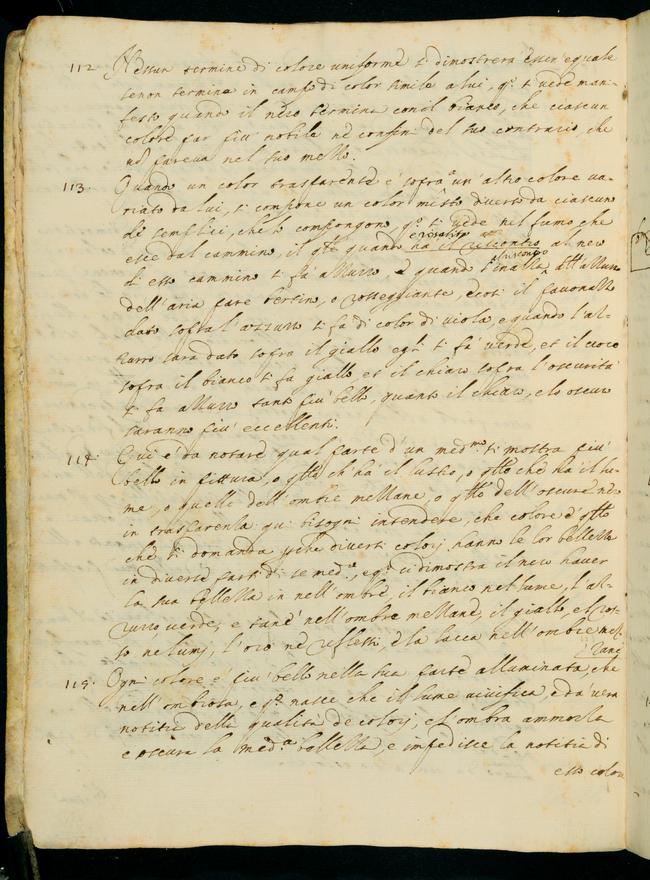 112 Nessun termine di colore uniforme si dimostrerà esser equale
se non termina in campo di color simile a lui, q.º si vede mani-
festo quando il nero termina con il bianco, che ciascun
colore par più nobile ne confini del suo contrario, che
nò pareva nel suo mezzo.
113. Quando un color trasparente è sopra un' altro colore va-
riato da lui, si compone un color misto diverso da ciascun
de semplici, che lo compongono, q.º si vede nel fumo che
esce dal cammino, il qle quando ha il riscontro al nero
di esso cammino si fà azzurro e quando s'inalza all' azzurro
dell' aria pare bertino, o rosseggiante, e così il pavonazzo
dato sopra l'azzurro si fà di color di viola, e quando l'az-
zurro sarà dato sopra il giallo egli si fà verde, et il croco
sopra il bianco si fà giallo et il chiaro sopra l'oscurità
si fa azzurro tanto più bello, quanto il chiaro, e lo oscuro
saranno più eccellenti.
114. Qui è da notare qual parte d'un med.mo si mostra più
bello in pittura, o qllo ch'hà il lustro, o qllo che hà il lu-
me, o quello dell' ombre mezzane, o qllo dell' oscure, ò
in trasparenza: qui bisogna intendere, che colore è qllo
che si domanda, pche diversi colorj hanno le lor bellezze
in diverse parti di se med.º, e q.º ci dimostra il nero haver
la sua bellezza in nell' ombre, il bianco nel lume, l'az-
zurro verde, e tanè nell' ombre mezzane, il giallo, e l'ros-
so ne lumj, l'oro ne reflessi, e la lacca nell' ombre mez-
zane
115. Ogni colore è più bello nella sua parte alluminata, che
nell' ombrosa, e q.º nasce che il lume vivifica, e dà vera
notitia delle qualità de colorj, e l'ombra ammorza
e oscura la med.ª bellezza, e impedisce la notitia di
esso colore